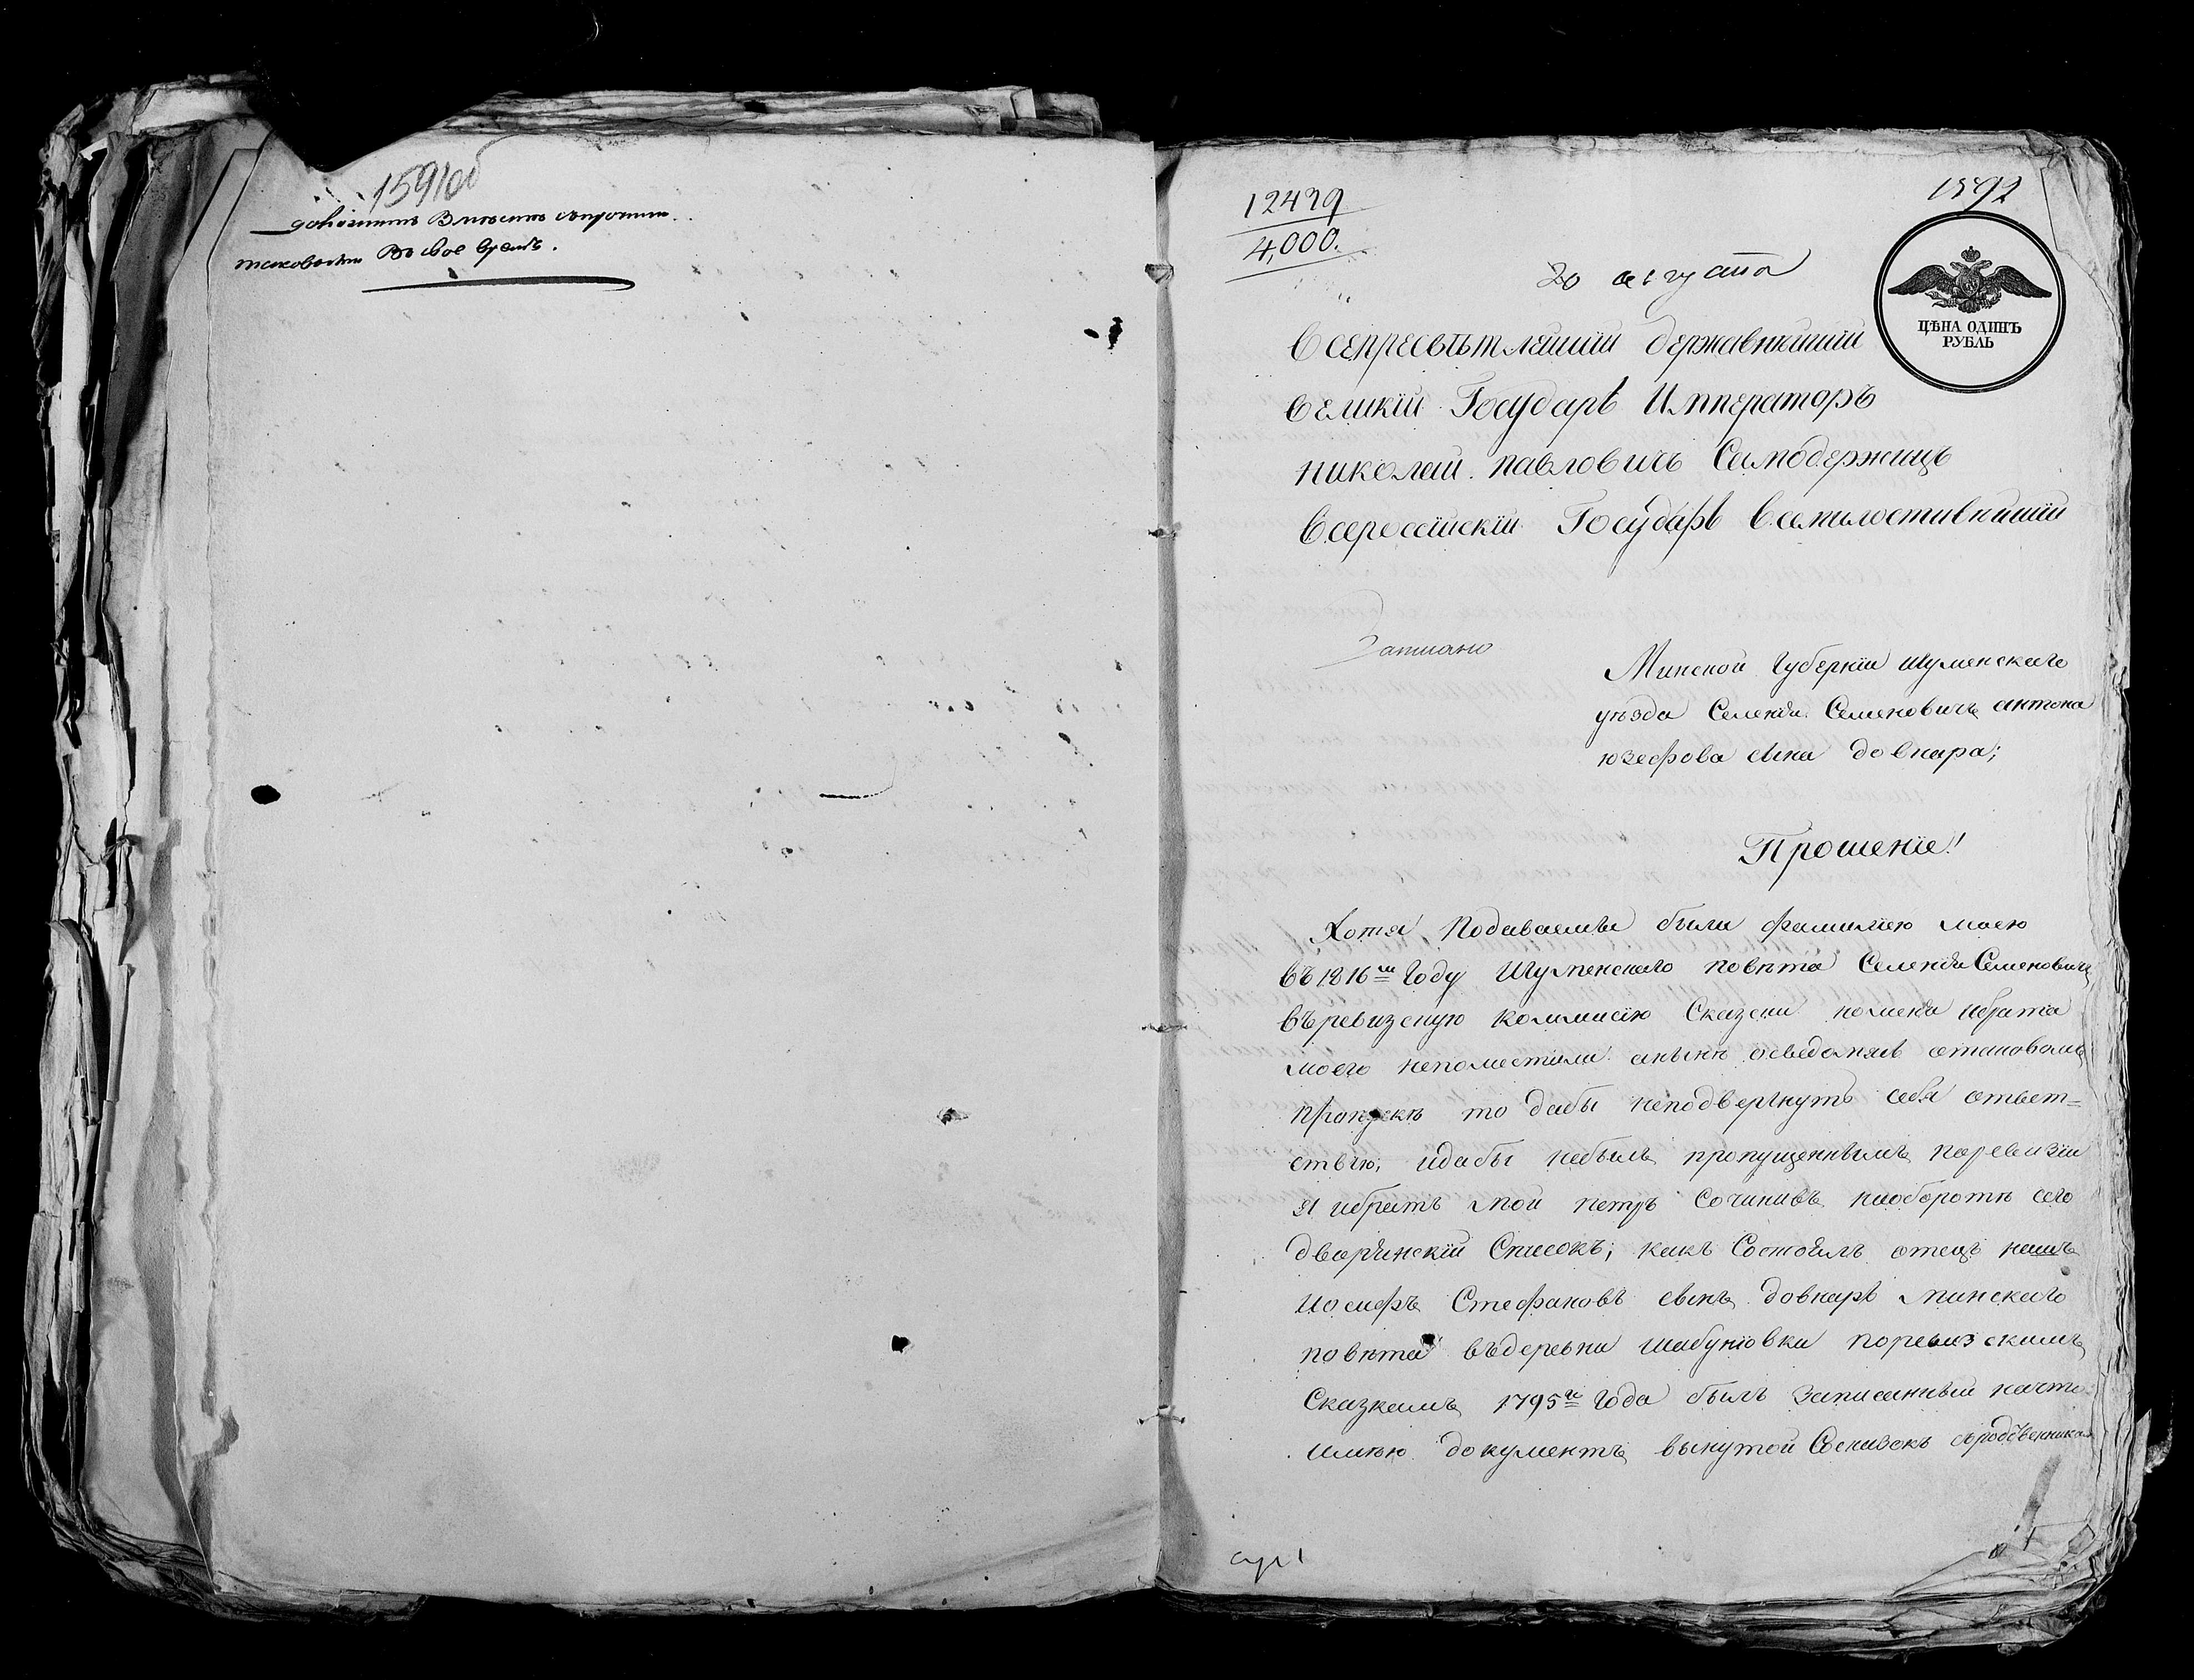 1591 об
въ свое время.
12429
4,000.
1592
20 августа
ЦѢНА ОДИНЪ
РУБЛЬ
Всепресвѣтлейшій державнѣйшій
Великій Государь Императоръ
николай павловичь Самодержецъ
Всероссійскій Государь Всемилостивѣйшій
Записано
Минской Губерніи Игуменскаго
уѣзда Селенія Семеновичъ антона
юзефова сына довнара;
Прошеніе!
Хотя подаваемы были фамиліею моею
въ 1816м году Игуменскаго повѣта Селенія Семеновичъ
въ ревизсную коммисію Сказски но меня ибрата
моего непоместили анынѣ осведомясь отаковомъ
пропускѣ то дабы неподвергнуть себя ответ=
ствію, идабы небылъ пропущеннымъ поревизіи
я ибратъ мой петръ Сочинивъ наоборотѣ сего
дворянскій Списокъ; какъ Состоялъ отецъ нашъ
Иосифъ Стефановъ сынъ довнаръ минскаго
повѣта въдеревни шабуніовки поревизскимъ
Сказкамъ 1795го Года былъ записанный начто
имѣю документъ вынутой